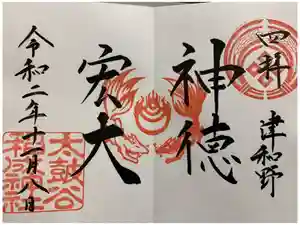 四拝
津和野
神徳
宏大
令和二年十一月八日
太皷谷
稲成神社